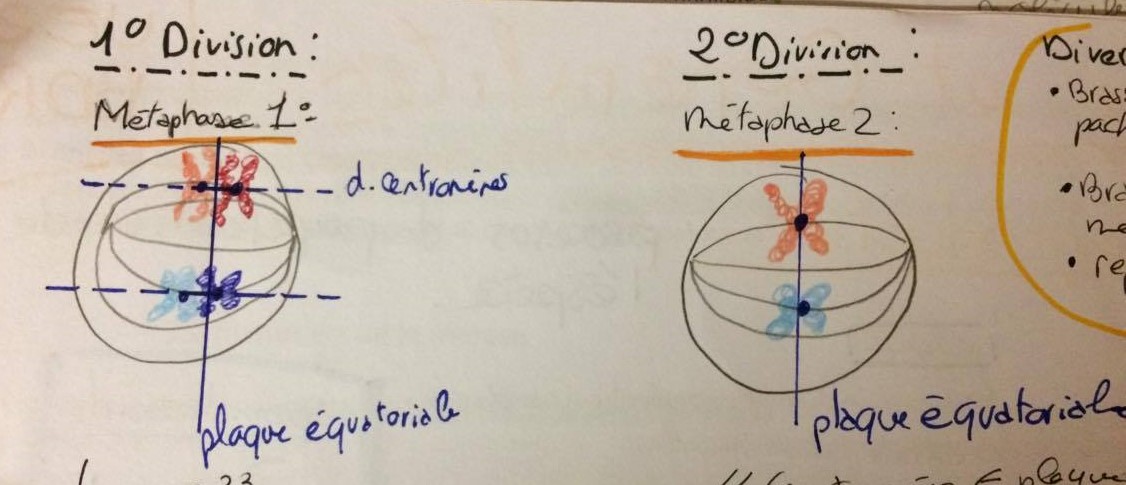 1° Division :
Métaphase 1°
d. centromères
plaque équatoriale
2° Division :
métaphase 2 :
plaque équatoriale
Diver
• Brass
pach
• Bra
me
• re
23
plaque